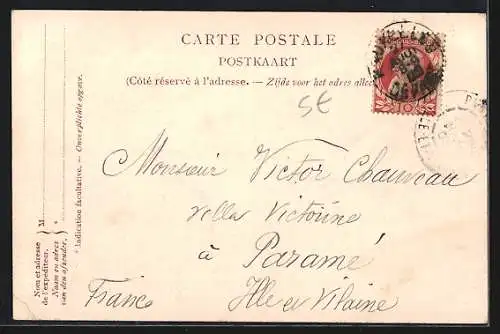 CARTE POSTALE
POSTKAART
(Côté réservé à l'adresse. — Zijde voor het adres
5€
Monsieur Victor Chauveau
villa Victorine
à Paramé
France Ille et Vilaine
Nom et adresse de l'expéditeur.
Naam en adres van den afzender.
M
* Indication facultative. — Onverplichte opgave.
10